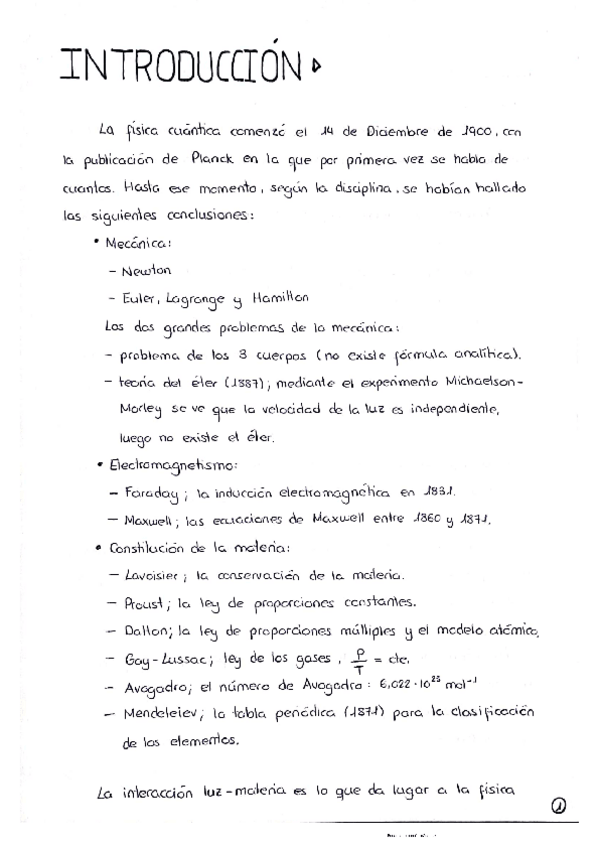 INTRODUCCIÓN
La física cuántica comenzó el 14 de Diciembre de 1900, con
la publicación de Planck en la que por primera vez se habla de
cuantos. Hasta ese momento, según la disciplina, se habían hallado
las siguientes conclusiones:
• Mecánica:
- Newton
- Euler, Lagrange y Hamilton
Los dos grandes problemas de la mecánica:
- problema de los 3 cuerpos (no existe fórmula analítica).
- teoría del éter (1887); mediante el experimento Michaelson-
Morley se ve que la velocidad de la luz es independiente,
luego no existe el éter.
• Electromagnetismo:
- Faraday; la inducción electromagnética en 1831.
- Maxwell; las ecuaciones de Maxwell entre 1860 y 1871.
• Constitución de la materia:
- Lavoisier; la conservación de la materia.
- Proust; la ley de proporciones constantes.
- Dalton; la ley de proporciones múltiples y el modelo atómico.
- Gay-Lussac; ley de los gases, P/T = cte.
- Avogadro; el número de Avogadro: 6,022·10²³ mol⁻¹
- Mendeleiev; la tabla periódica (1871) para la clasificación
de los elementos.
La interacción luz-materia es lo que da lugar a la física
1